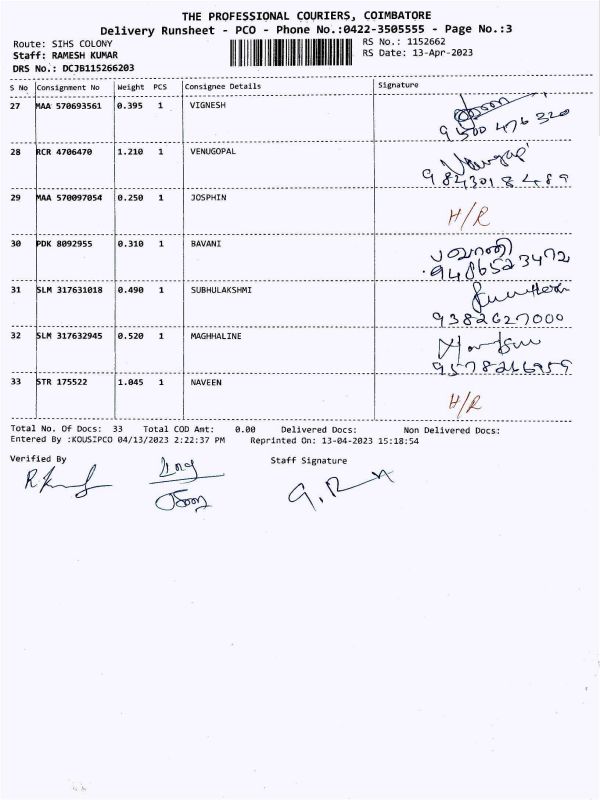 THE PROFESSIONAL COURIERS, COIMBATORE
Delivery Runsheet - PCO - Phone No.:0422-3505555 - Page No.:3
Route: SIHS COLONY RS No.: 1152662
Staff: RAMESH KUMAR RS Date: 13-Apr-2023
DRS No.: DCJB115266203
S No Consignment No Weight PCS Consignee Details Signature
27 MAA 570693561 0.395 1 VIGNESH
9500 476 320
28 RCR 4706470 1.210 1 VENUGOPAL
9843018489
29 MAA 570097054 0.250 1 JOSPHIN
H/R
30 PDK 8092955 0.310 1 BAVANI பவானி
9486523472
31 SLM 317631018 0.490 1 SUBHULAKSHMI
9382627000
32 SLM 317632945 0.520 1 MAGHHALINE
33 STR 175522 1.045 1 NAVEEN
H/R
Total No. Of Docs: 33 Total COD Amt: 0.00 Delivered Docs: Non Delivered Docs:
Entered By :KOUSIPCO 04/13/2023 2:22:37 PM Reprinted On: 13-04-2023 15:18:54
Verified By Staff Signature